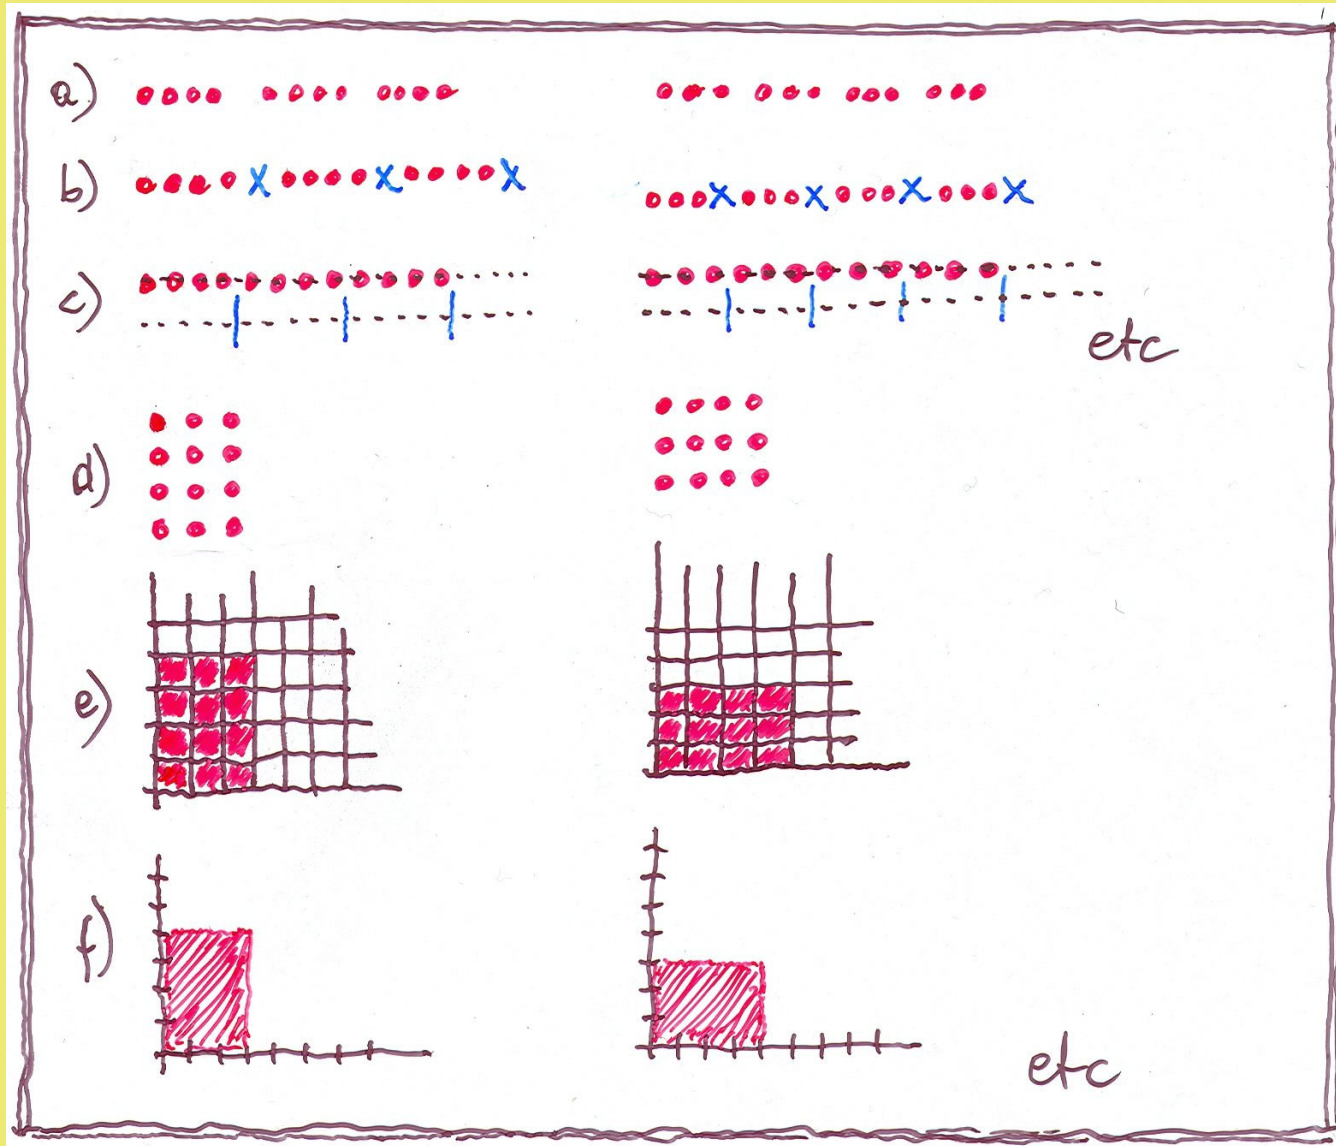 a)
b)
c)
etc
d)
e)
f)
etc